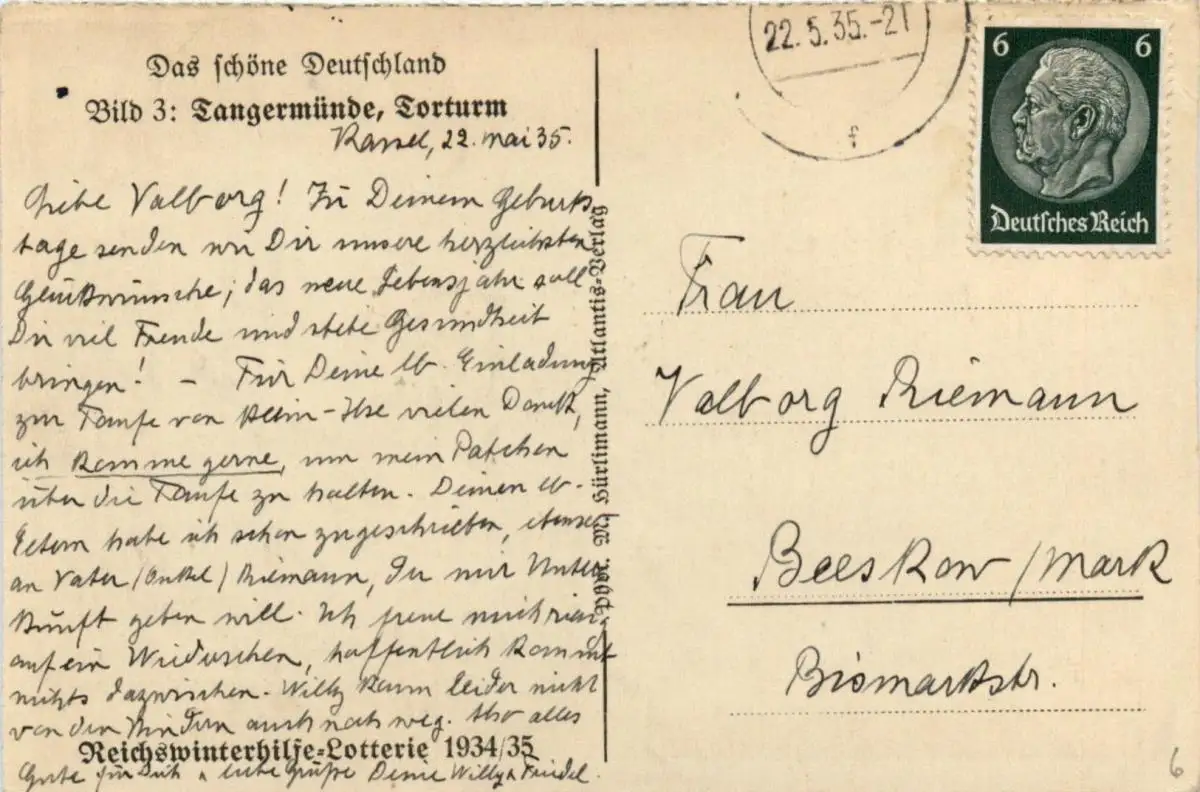 Das schöne Deutschland
Bild 3: Tangermünde, Torturm
Kassel, 22. Mai 35.
Liebe Valborg! Zu Deinem Geburts
tage senden wir Dir unsere herzlichsten
Glückwünsche; das neue Lebensjahr soll
Dir viel Freude und stete Gesundheit
bringen! - Für Deine lb. Einladung
zur Taufe von Klein-Ilse vielen Dank,
ich komme gerne, um mein Patchen
über die Taufe zu halten. Deinen lb.
Eltern habe ich schon zugeschrieben, ebenso
an Vater (Onkel) Riemann, der mir Unter
kunft geben will. Ich freue mich
auf ein Wiedersehen, hoffentlich kommt
nichts dazwischen. Willy kann leider nicht
von den Kindern auch noch weg. Also alles
Reichswinterhilfe-Lotterie 1934/35
Gute für Dich u. liebe Grüße Deine Willy u. Friedel.
Phot. M. Hürlimann, Atlantis-Verlag
22.5.35.-21
f
6 6
Deutsches Reich
Frau
Valborg Riemann
Beeskow/Mark
Bismarkstr.
6